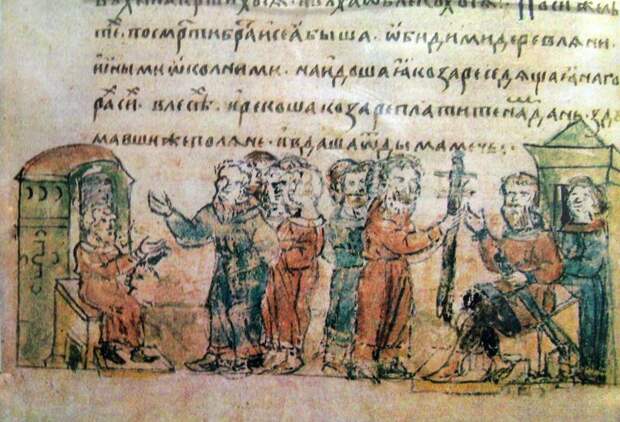 По си же лѣ
тѣ · по смр҃ти бра҃и сеꙗ быша · ѡбидими деревлѧни ·
ины ми ѡколними · наидоша ꙗ козаре седѧщаꙗ на го
ра҃ си · в лесѣ · и рекоша козаре платите на дань · здꙋ
мавши же полѧне · и вдаша ѿ дыма мечь :·